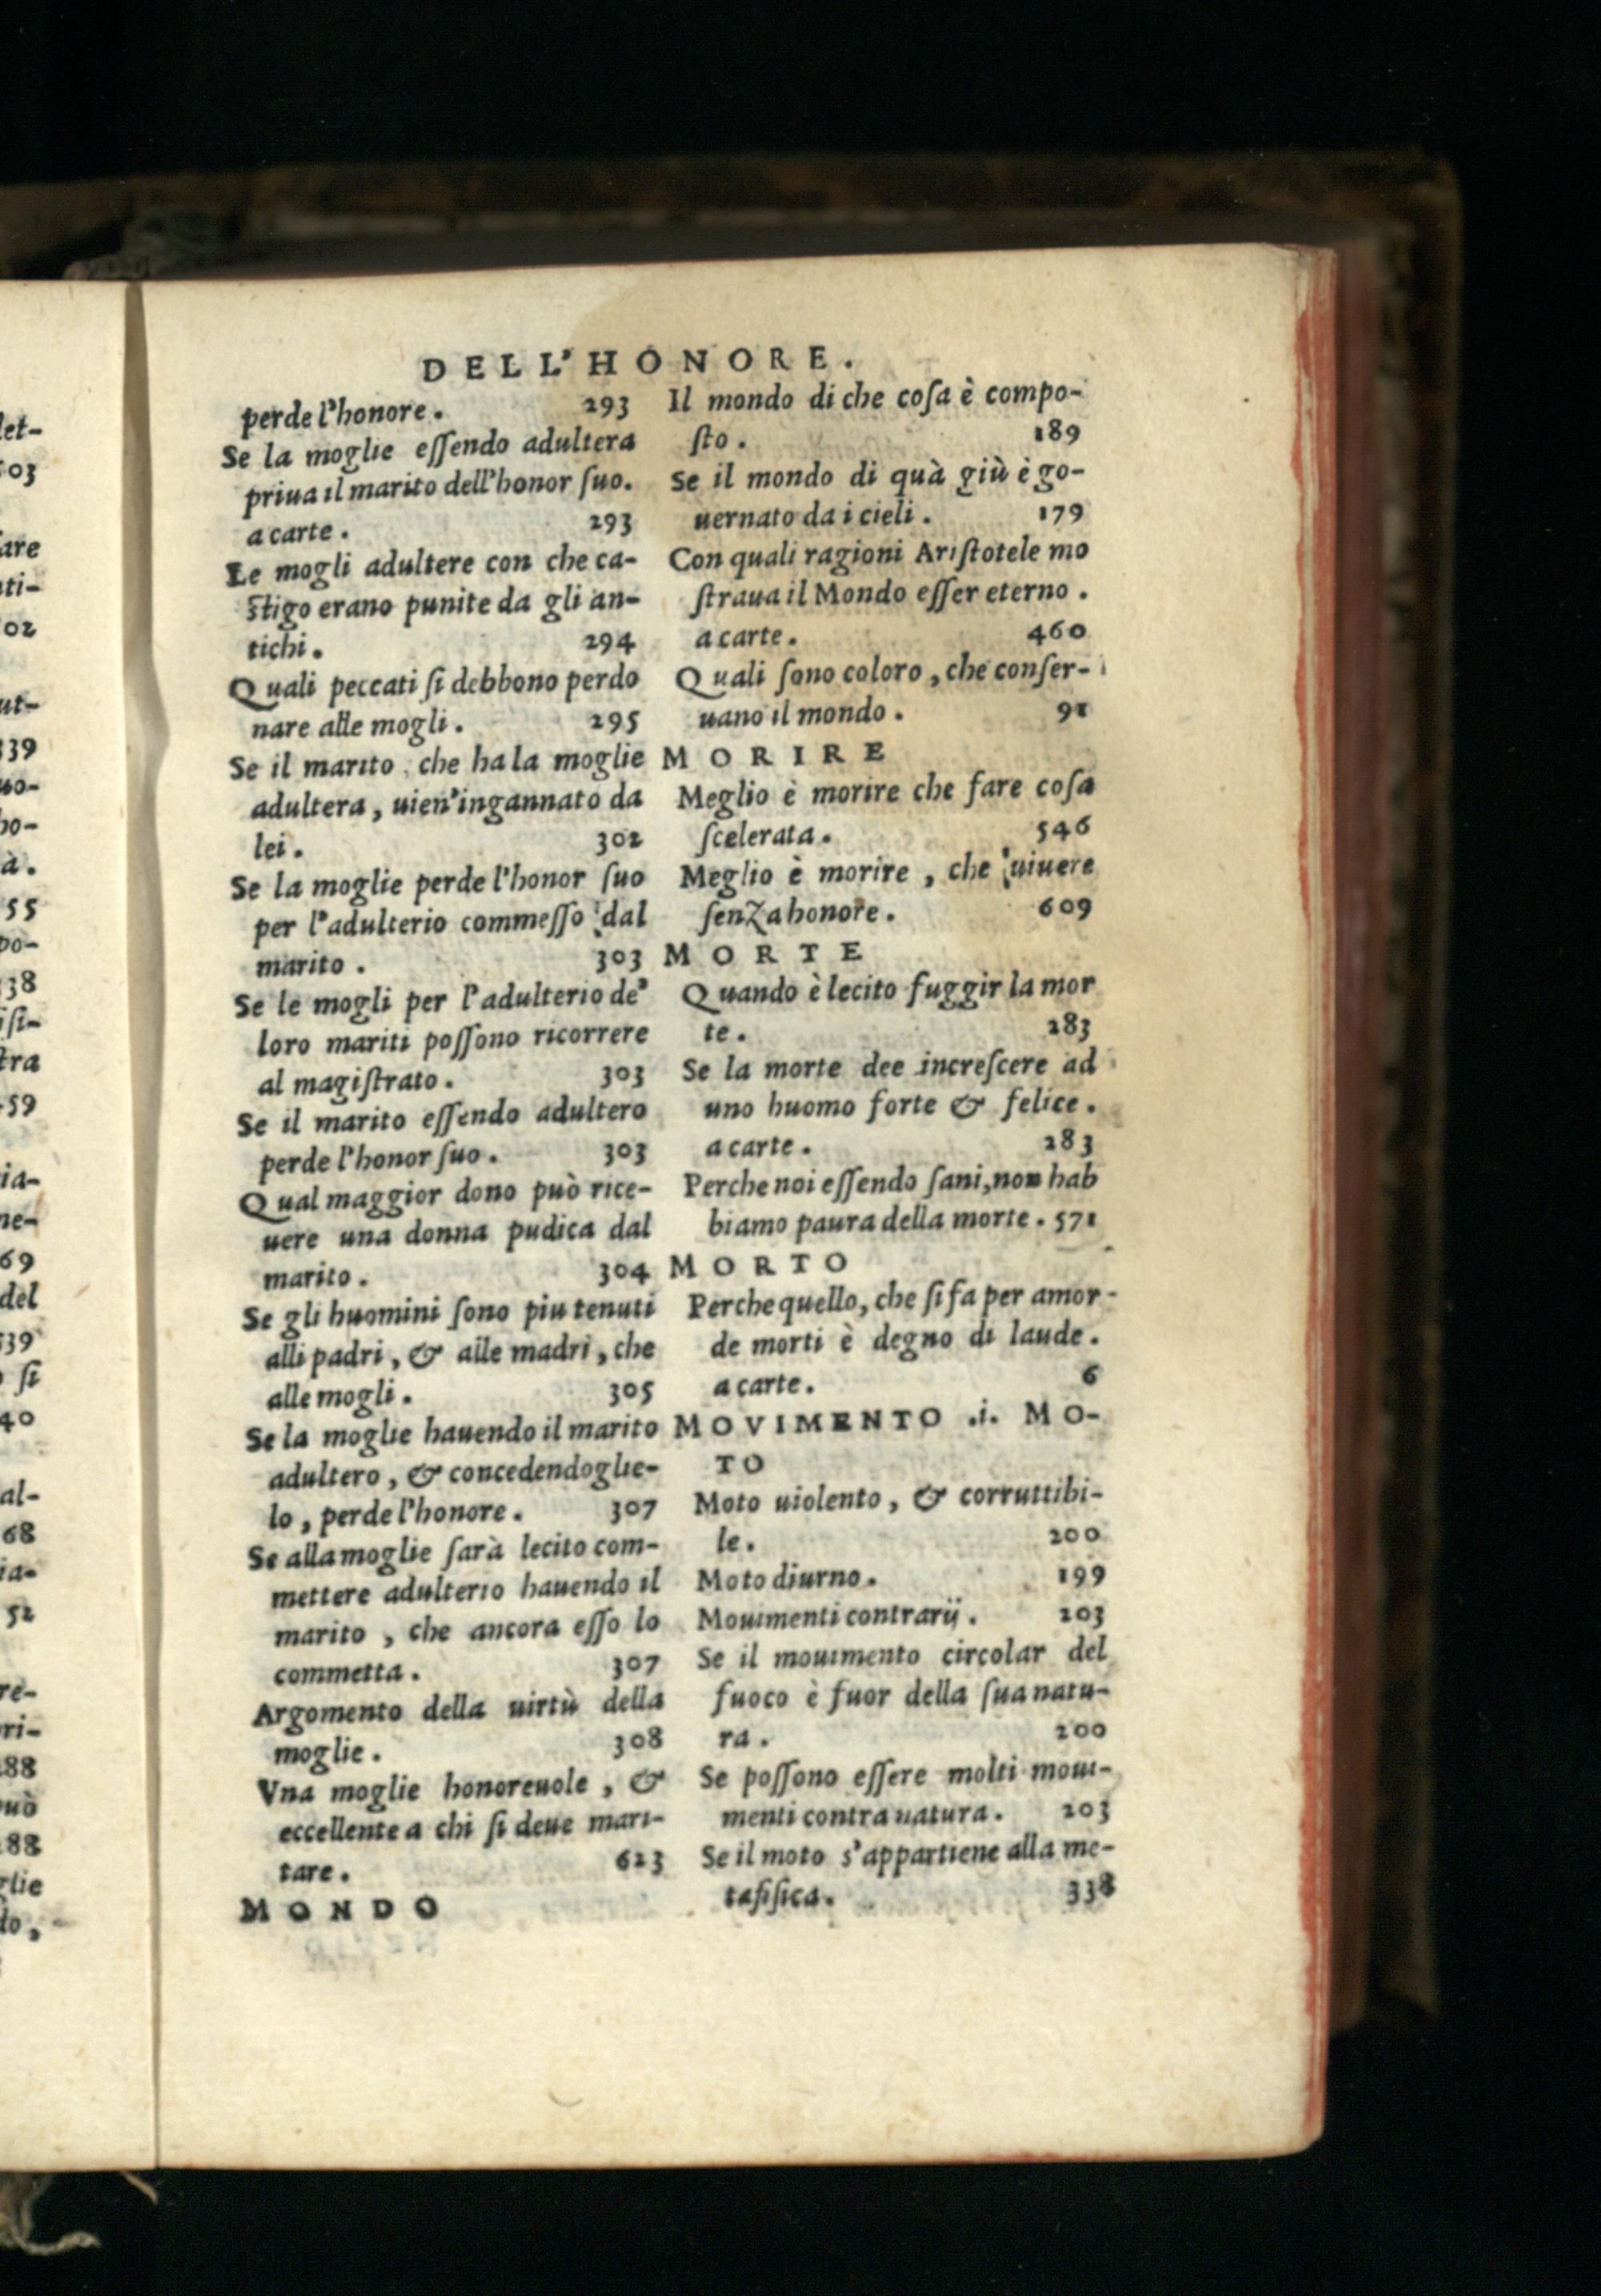 DELL'HONORE.
perde l'honore. 293
Se la moglie eſſendo adultera
priua il marito dell'honor ſuo.
a carte. 293
Le mogli adultere con che ca-
ſtigo erano punite da gli an-
tichi. 294
Quali peccati ſi debbono perdo
nare alle mogli. 295
Se il marito, che ha la moglie
adultera, uien'ingannato da
lei. 302
Se la moglie perde l'honor ſuo
per l'adulterio commeſſo dal
marito. 303
Se le mogli per l'adulterio de'
loro mariti poſſono ricorrere
al magiſtrato. 303
Se il marito eſſendo adultero
perde l'honor ſuo. 303
Qual maggior dono può rice-
uere una donna pudica dal
marito. 304
Se gli huomini ſono piu tenuti
alli padri, & alle madri, che
alle mogli. 305
Se la moglie hauendo il marito
adultero, & concedendoglie-
lo, perde l'honore. 307
Se alla moglie ſarà lecito com-
mettere adulterio hauendo il
marito, che ancora eſſo lo
commetta. 307
Argomento della uirtù della
moglie. 308
Vna moglie honoreuole, &
eccellente a chi ſi deue mari-
tare. 623
MONDO
Il mondo di che coſa è compo-
ſto. 189
Se il mondo di quà giù è go-
uernato da i cieli. 179
Con quali ragioni Ariſtotele mo
ſtraua il Mondo eſſer eterno.
a carte. 460
Quali ſono coloro, che conſer-
uano il mondo. 91
MORIRE
Meglio è morire che fare coſa
ſcelerata. 546
Meglio è morire, che uiuere
ſenza honore. 609
MORTE
Quando è lecito fuggir la mor
te. 283
Se la morte dee increſcere ad
uno huomo forte & felice.
a carte. 283
Perche noi eſſendo ſani, non hab
biamo paura della morte. 571
MORTO
Perche quello, che ſi fa per amor
de morti è degno di laude.
a carte. 6
MOVIMENTO .i. MO-
TO
Moto uiolento, & corruttibi-
le. 200
Moto diurno. 199
Mouimenti contrarij. 203
Se il mouimento circolar del
fuoco è fuor della ſua natu-
ra. 200
Se poſſono eſſere molti moui-
menti contra natura. 203
Se il moto s'appartiene alla me-
tafiſica. 338